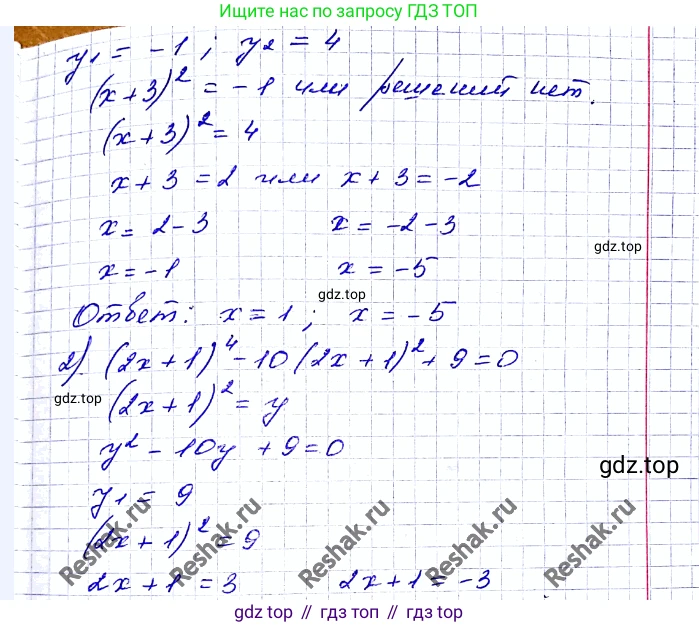 Ищите нас по запросу ГДЗ ТОП
y₁ = -1 ; y₂ = 4
(x+3)² = -1 или решений нет.
(x+3)² = 4
x+3 = 2 или x+3 = -2
x = 2-3 x = -2-3
gdz.top
x = -1 x = -5
gdz.top
Ответ: x = 1 ; x = -5
2). (2x+1)⁴ - 10(2x+1)² + 9 = 0
gdz.top
(2x+1)² = y
y² - 10y + 9 = 0
gdz.top
y₁ = 9
(2x+1)² = 9
Reshak.ru Reshak.ru Reshak.ru Reshak.ru
2x+1 = 3 2x+1 = -3
gdz.top // гдз топ // gdz.top